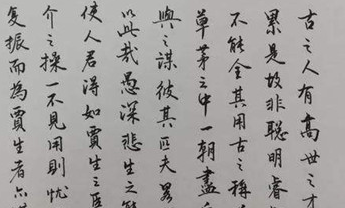 古之人有高世之才
累是故非聪明睿
不能全其用古之称
草茅之中一朝盡
與之謀彼其匹夫畧
以此哉愚深悲生之
使人君得如賈生之臣
介之操一不見用則忧
复振而為賈生者亦